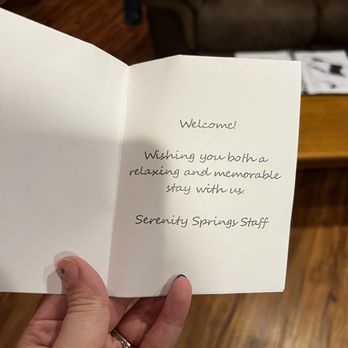 Welcome!
Wishing you both a
relaxing and memorable
stay with us.
Serenity Springs Staff